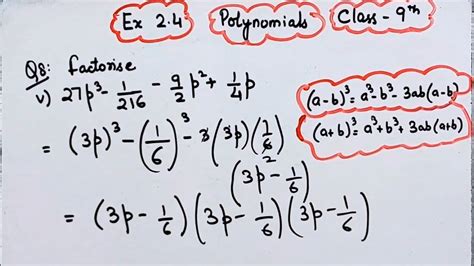 Ex 2.4 Polynomials Class - 9th
Q8: Factorise
v) 27p³ - 1/216 - 9/2 p² + 1/4 p
(a-b)³ = a³-b³- 3ab(a-b)
(a+b)³ = a³+b³+ 3ab(a+b)
= (3p)³ - (1/6)³ - 3(3p)(1/6)
(3p - 1/6)
= (3p - 1/6)(3p - 1/6)(3p - 1/6)